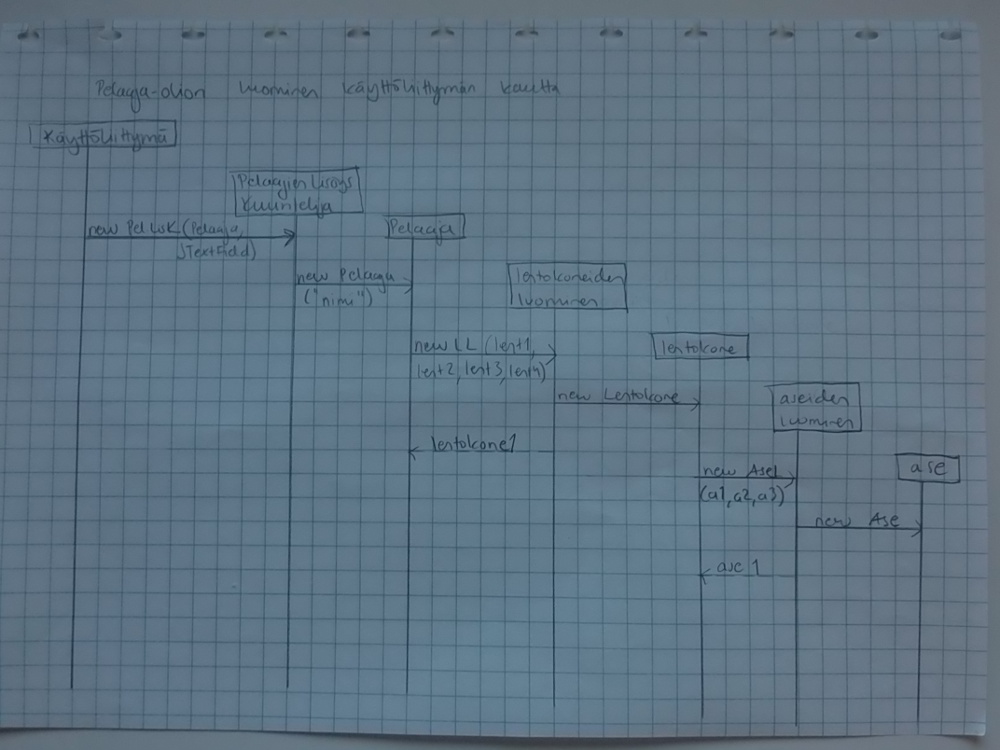 Pelaaja-olion luominen käyttöliittymän kautta
Käyttöliittymä
Pelaajien Lisäys
Kuuntelija
new PelLisK (Pelaaja,
JTextField)
Pelaaja
new Pelaaja
("nimi")
lentokoneiden
luominen
new LL (lent1,
lent2, lent3, lent4)
lentokone
new Lentokone
aseiden
luominen
lentokone1
new Asel
(a1, a2, a3)
ase
new Ase
ase 1